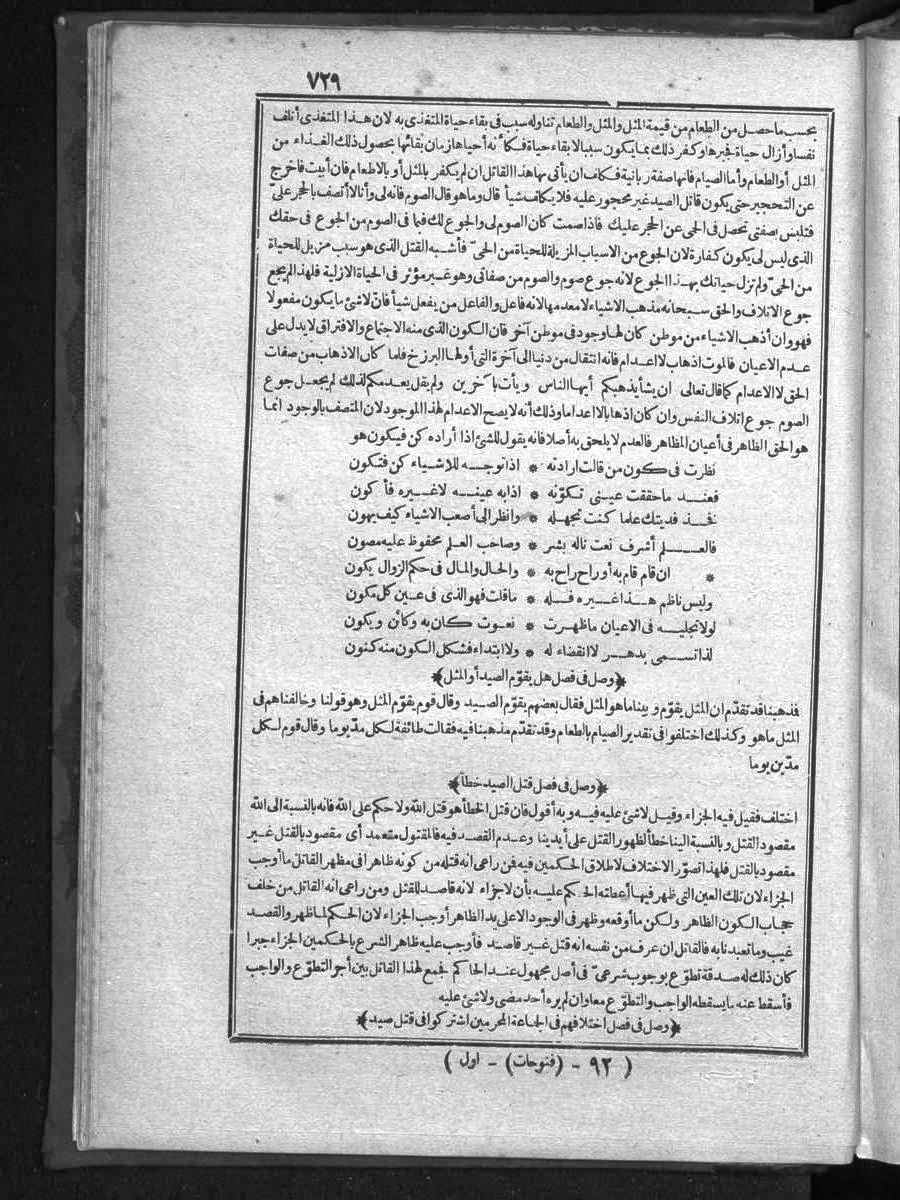 ٧٢٩
بحسب ما حصل من الطعام من قيمة المثل والمثل والطعام تناوله سبب فى بقاء حياة المتغذى به لان هذا المتغذى أتلف
نفسا وأزال حياة فجبرها وكفر ذلك بما يكون سببا لابقاء حياة فكأنه أحياها زمان بقائها بحصول ذلك الغذاء من
المثل أو الطعام وأما الصيام فانها صفة ربانية فكلف ان يأتى بها هذا القاتل ان لم يكفر بالمثل أو بالاطعام فان أبيت فاخرج
عن التحجير حتى يكون قاتل الصيد غير محجور عليه فلا يكلف شيأ قال وما هو قال الصوم فانه لى وأنا لا أتصف بالحجر علىّ
فتلبس بصفتى تحصل فى الحمى عن الحجر عليك فاذا صمت كان الصوم لى والجوع لك فما فى الصوم من الجوع فى حقك
الذى ليس لى يكون كفارة لان الجوع من الاسباب المزيلة للحياة من الحىّ فأشبه القتل الذى هو سبب مزيل للحياة
من الحىّ ولم تزل حياتك بهذا الجوع لانه جوع صوم والصوم من صفاتى وهو غير مؤثر فى الحياة الازلية فلهذا لم يجع
جوع الاتلاف والحق سبحانه مذهب الاشياء لا معدمها لانه فاعل والفاعل من يفعل شيأ فانّ لا شئ ما يكون مفعولا
فهو وان أذهب الاشياء من موطن كان لها وجود فى موطن آخر فان السكون الذى منه الاجتماع والافتراق لا يدل على
عدم الاعيان فالموت اذهاب لا اعدام فانه انتقال من دنيا الى آخرة التى أولها البرزخ فلما كان الاذهاب من صفات
الحق لا الاعدام كما قال تعالى ان يشأ يذهبكم أيها الناس ويأت بآخرين ولم يقل يعدمكم لذلك لم يجعل جوع
الصوم جوع اتلاف النفس وان كان اذهابا لا اعداما وذلك أنه لا يصح الاعدام لهذا الموجود لان المتصف بالوجود انما
هو الحق الظاهر فى أعيان المظاهر فالعدم لا يلحق به أصلا فانه يقول للشئ اذا أراده كن فيكون هو
نظرت فى كون من قالت ارادته * اذا توجه للاشياء كن فتكون
فعند ما حققت عينى تكوّنه * اذا به عينه لا غيره فأكون
فخذ فديتك علما كنت تجهله * وانظر الى أصعب الاشياء كيف يهون
فالعلم أشرف نعت ناله بشر * وصاحب العلم محفوظ عليه مصون
* ان قام قام به أو راح راح به * والحال والمال فى حكم الزوال يكون
وليس ناظم هذا غيره فله * ما قلت فهو الذى فى عين كل مكون
لولا تجليه فى الاعيان ما ظهرت * نعوت كان به وكائن ويكون
لذا تسمى بدهر لا انقضاء له * ولا ابتداء فشكل الكون منه كنون
﴿وصل فى فصل هل يقوّم الصيد أو المثل﴾
فذهبنا قد تقدّم ان المثل يقوّم وبينا ما هو المثل فقال بعضهم يقوّم الصيد وقال قوم يقوّم المثل وهو قولنا وخالفناهم فى
المثل ما هو وكذلك اختلفوا فى تقدير الصيام بالطعام وقد تقدّم مذهبنا فيه فقالت طائفة لكل مدّ يوما وقال قوم لكل
مدّين يوما
﴿وصل فى فصل قتل الصيد خطأ﴾
اختلف فقيل فيه الجزاء وقيل لا شئ عليه فيه وبه أقول فان قتل الخطأ هو قتل الله ولا حكم على الله فانه بالنسبة الى الله
مقصود القتل وبالنسبة الينا خطأ لظهور القتل على أيدينا وعدم القصد فيه فالمقتول متعمد أى مقصود بالقتل غير
مقصود بالقتل فلهذا تصوّر الاختلاف لاطلاق الحكمين فيه فن راعى انه قتله من كونه ظاهرا فى مظهر القاتل ما أوجب
الجزاء لان تلك العين التى ظهر فيها أعطته الحكم عليه بأن لا جزاء لانه قاصد للقتل ومن راعى انه القاتل من خلف
حجاب الكون الظاهر ولكن ما أوقعه وظهر فى الوجود الا على يد الظاهر أوجب الجزاء لان الحكم لما ظهر والقصد
غيب وما تعبدنا به فالقاتل ان عرف من نفسه انه قتل غير قاصد فأوجب عليه ظاهر الشرع بالحكمين الجزاء جبرا
كان ذلك له صدقة تطوّع بوجوب شرعىّ فى أصل مجهول عند الحاكم فجمع لهذا القاتل بين أجر التطوّع والواجب
فأسقط عنه ما يسقطه الواجب والتطوّع معا وان لم يره أحد مضى ولا شئ عليه
﴿وصل فى فصل اختلافهم فى الجماعة المحرمين اشتركوا فى قتل صيد﴾
( ٩٢ - (فتوحات) - اول )